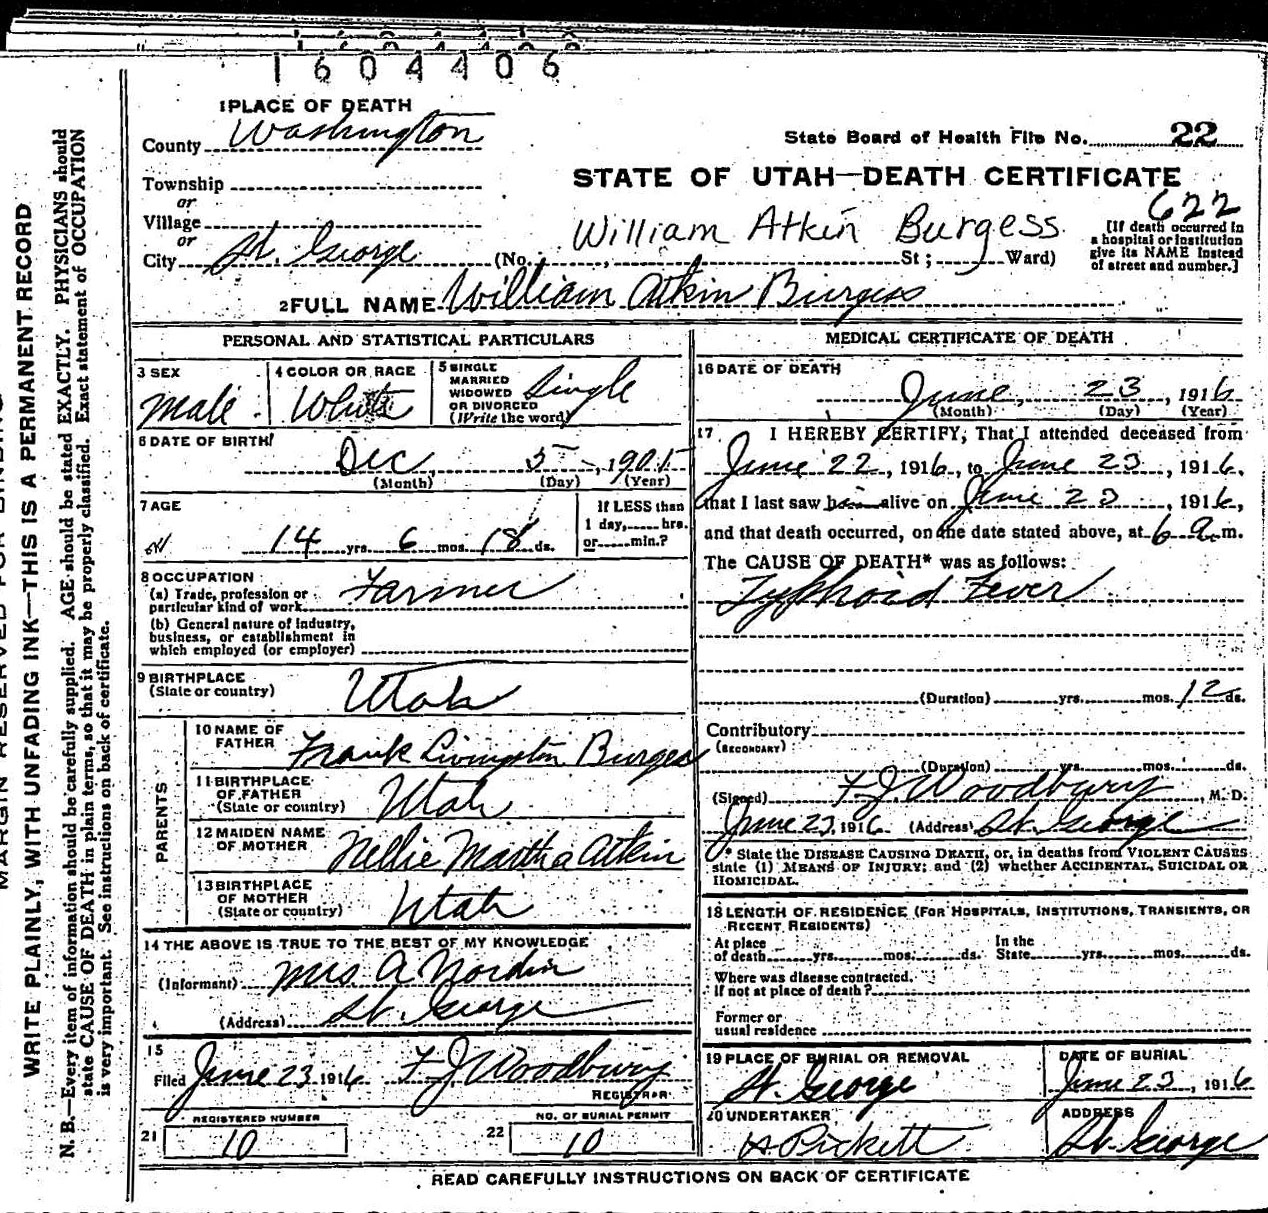 1604406
1 PLACE OF DEATH
County Washington
State Board of Health File No. 22
Township
or
Village
or
City St. George (No. , St ; Ward)
STATE OF UTAH—DEATH CERTIFICATE
622
William Atkin Burgess
[If death occurred in
a hospital or institution
give its NAME instead
of street and number.]
2 FULL NAME William Atkin Burgess
PERSONAL AND STATISTICAL PARTICULARS
3 SEX
Male
4 COLOR OR RACE
White
5 SINGLE
MARRIED
WIDOWED
OR DIVORCED
(Write the word)
Single
6 DATE OF BIRTH
Dec 5, 1901
(Month) (Day) (Year)
7 AGE
14 yrs. 6 mos. 18 ds.
If LESS than
1 day, hrs.
or min.?
8 OCCUPATION
(a) Trade, profession or
particular kind of work
Farmer
(b) General nature of Industry,
business, or establishment in
which employed (or employer)
9 BIRTHPLACE
(State or country)
Utah
PARENTS
10 NAME OF
FATHER
Frank Livingston Burgess
11 BIRTHPLACE
OF FATHER
(State or country)
Utah
12 MAIDEN NAME
OF MOTHER
Nellie Martha Atkin
13 BIRTHPLACE
OF MOTHER
(State or country)
Utah
14 THE ABOVE IS TRUE TO THE BEST OF MY KNOWLEDGE
(Informant) Mrs. A Nordin
(Address) St. George
15
Filed June 23 1916 F J Woodbury
REGISTRAR
REGISTERED NUMBER
21 10
NO. OF BURIAL PERMIT
22 10
MEDICAL CERTIFICATE OF DEATH
16 DATE OF DEATH
June, 23, 1916
(Month) (Day) (Year)
17 I HEREBY CERTIFY, That I attended deceased from
June 22, 1916, to June 23, 1916,
that I last saw him alive on June 23, 1916,
and that death occurred, on the date stated above, at 6 a. m.
The CAUSE OF DEATH* was as follows:
Typhoid Fever
(Duration) yrs. mos. 12 ds.
Contributory
(SECONDARY)
(Duration) yrs. mos. ds.
(Signed) F J Woodbury, M. D.
June 23, 1916 (Address) St. George
* State the DISEASE CAUSING DEATH, or, in deaths from VIOLENT CAUSES
state (1) MEANS OF INJURY; and (2) whether ACCIDENTAL, SUICIDAL OR
HOMICIDAL.
18 LENGTH OF RESIDENCE (FOR HOSPITALS, INSTITUTIONS, TRANSIENTS, OR
RECENT RESIDENTS)
At place
of death yrs. mos. ds.
In the
State yrs. mos. ds.
Where was disease contracted.
If not at place of death?
Former or
usual residence
19 PLACE OF BURIAL OR REMOVAL
St. George
DATE OF BURIAL
June 23, 1916
20 UNDERTAKER
A Pickett
ADDRESS
St. George
READ CAREFULLY INSTRUCTIONS ON BACK OF CERTIFICATE
MARGIN RESERVED FOR BINDING
WRITE PLAINLY, WITH UNFADING INK—THIS IS A PERMANENT RECORD
N. B.—Every item of information should be carefully supplied. AGE should be stated EXACTLY. PHYSICIANS should
state CAUSE OF DEATH in plain terms, so that it may be properly classified. Exact statement of OCCUPATION
is very important. See instructions on back of certificate.